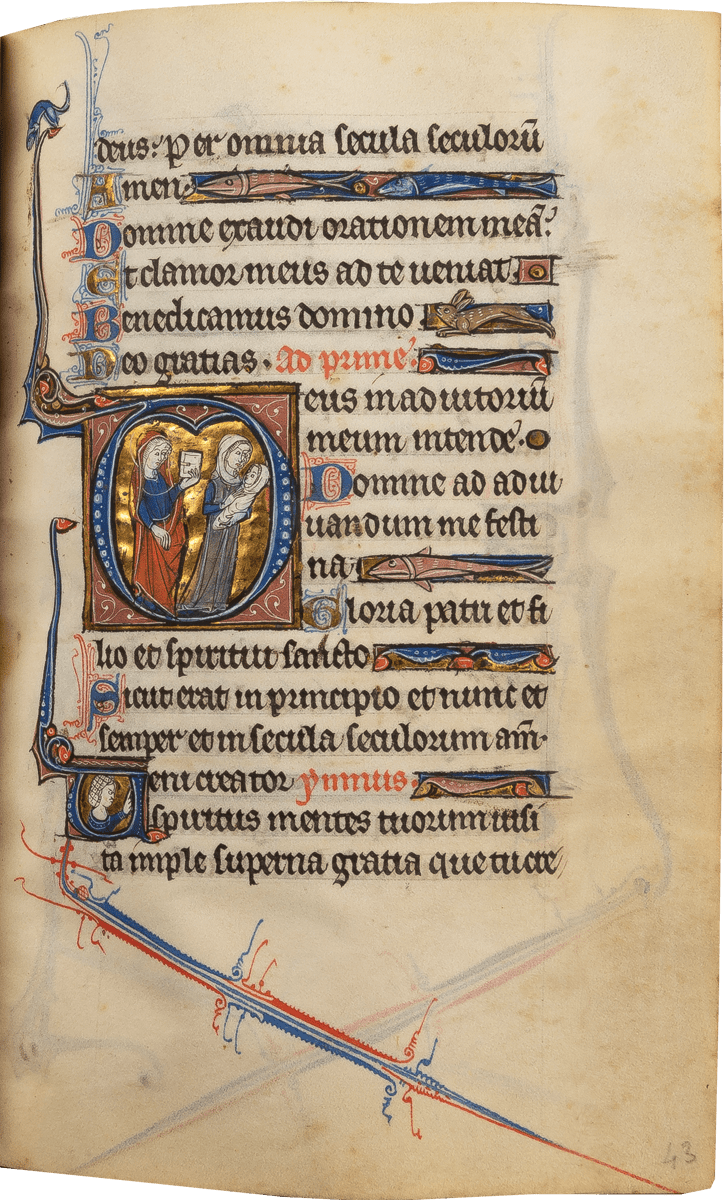 deus. Per omnia secula seculorũ
Amen.
Domine exaudi orationem meã.
Et clamor meus ad te ueniat.
Benedicamus domino
Deo gratias. ad prime.
Deus in adiutoriũ
meum intende.
Domine ad adiu
uandum me festi
na
Gloria patri et fi
lio et spiritui sancto
Sicut erat in principio et nunc et
semper et in secula seculorum am̃.
Veni creator ymnus.
spiritus mentes tuorum uisi
ta imple superna gratia que tu cre
43